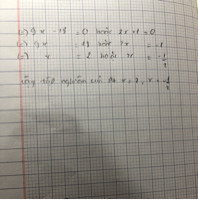 (=) 9x - 18 = 0 hoặc 2x + 1 = 0
(=) 9x = 18 hoặc 2x = -1
(=) x = 2 hoặc x = -1/2
Vậy tập nghiệm của pt x = 2, x = -1/2